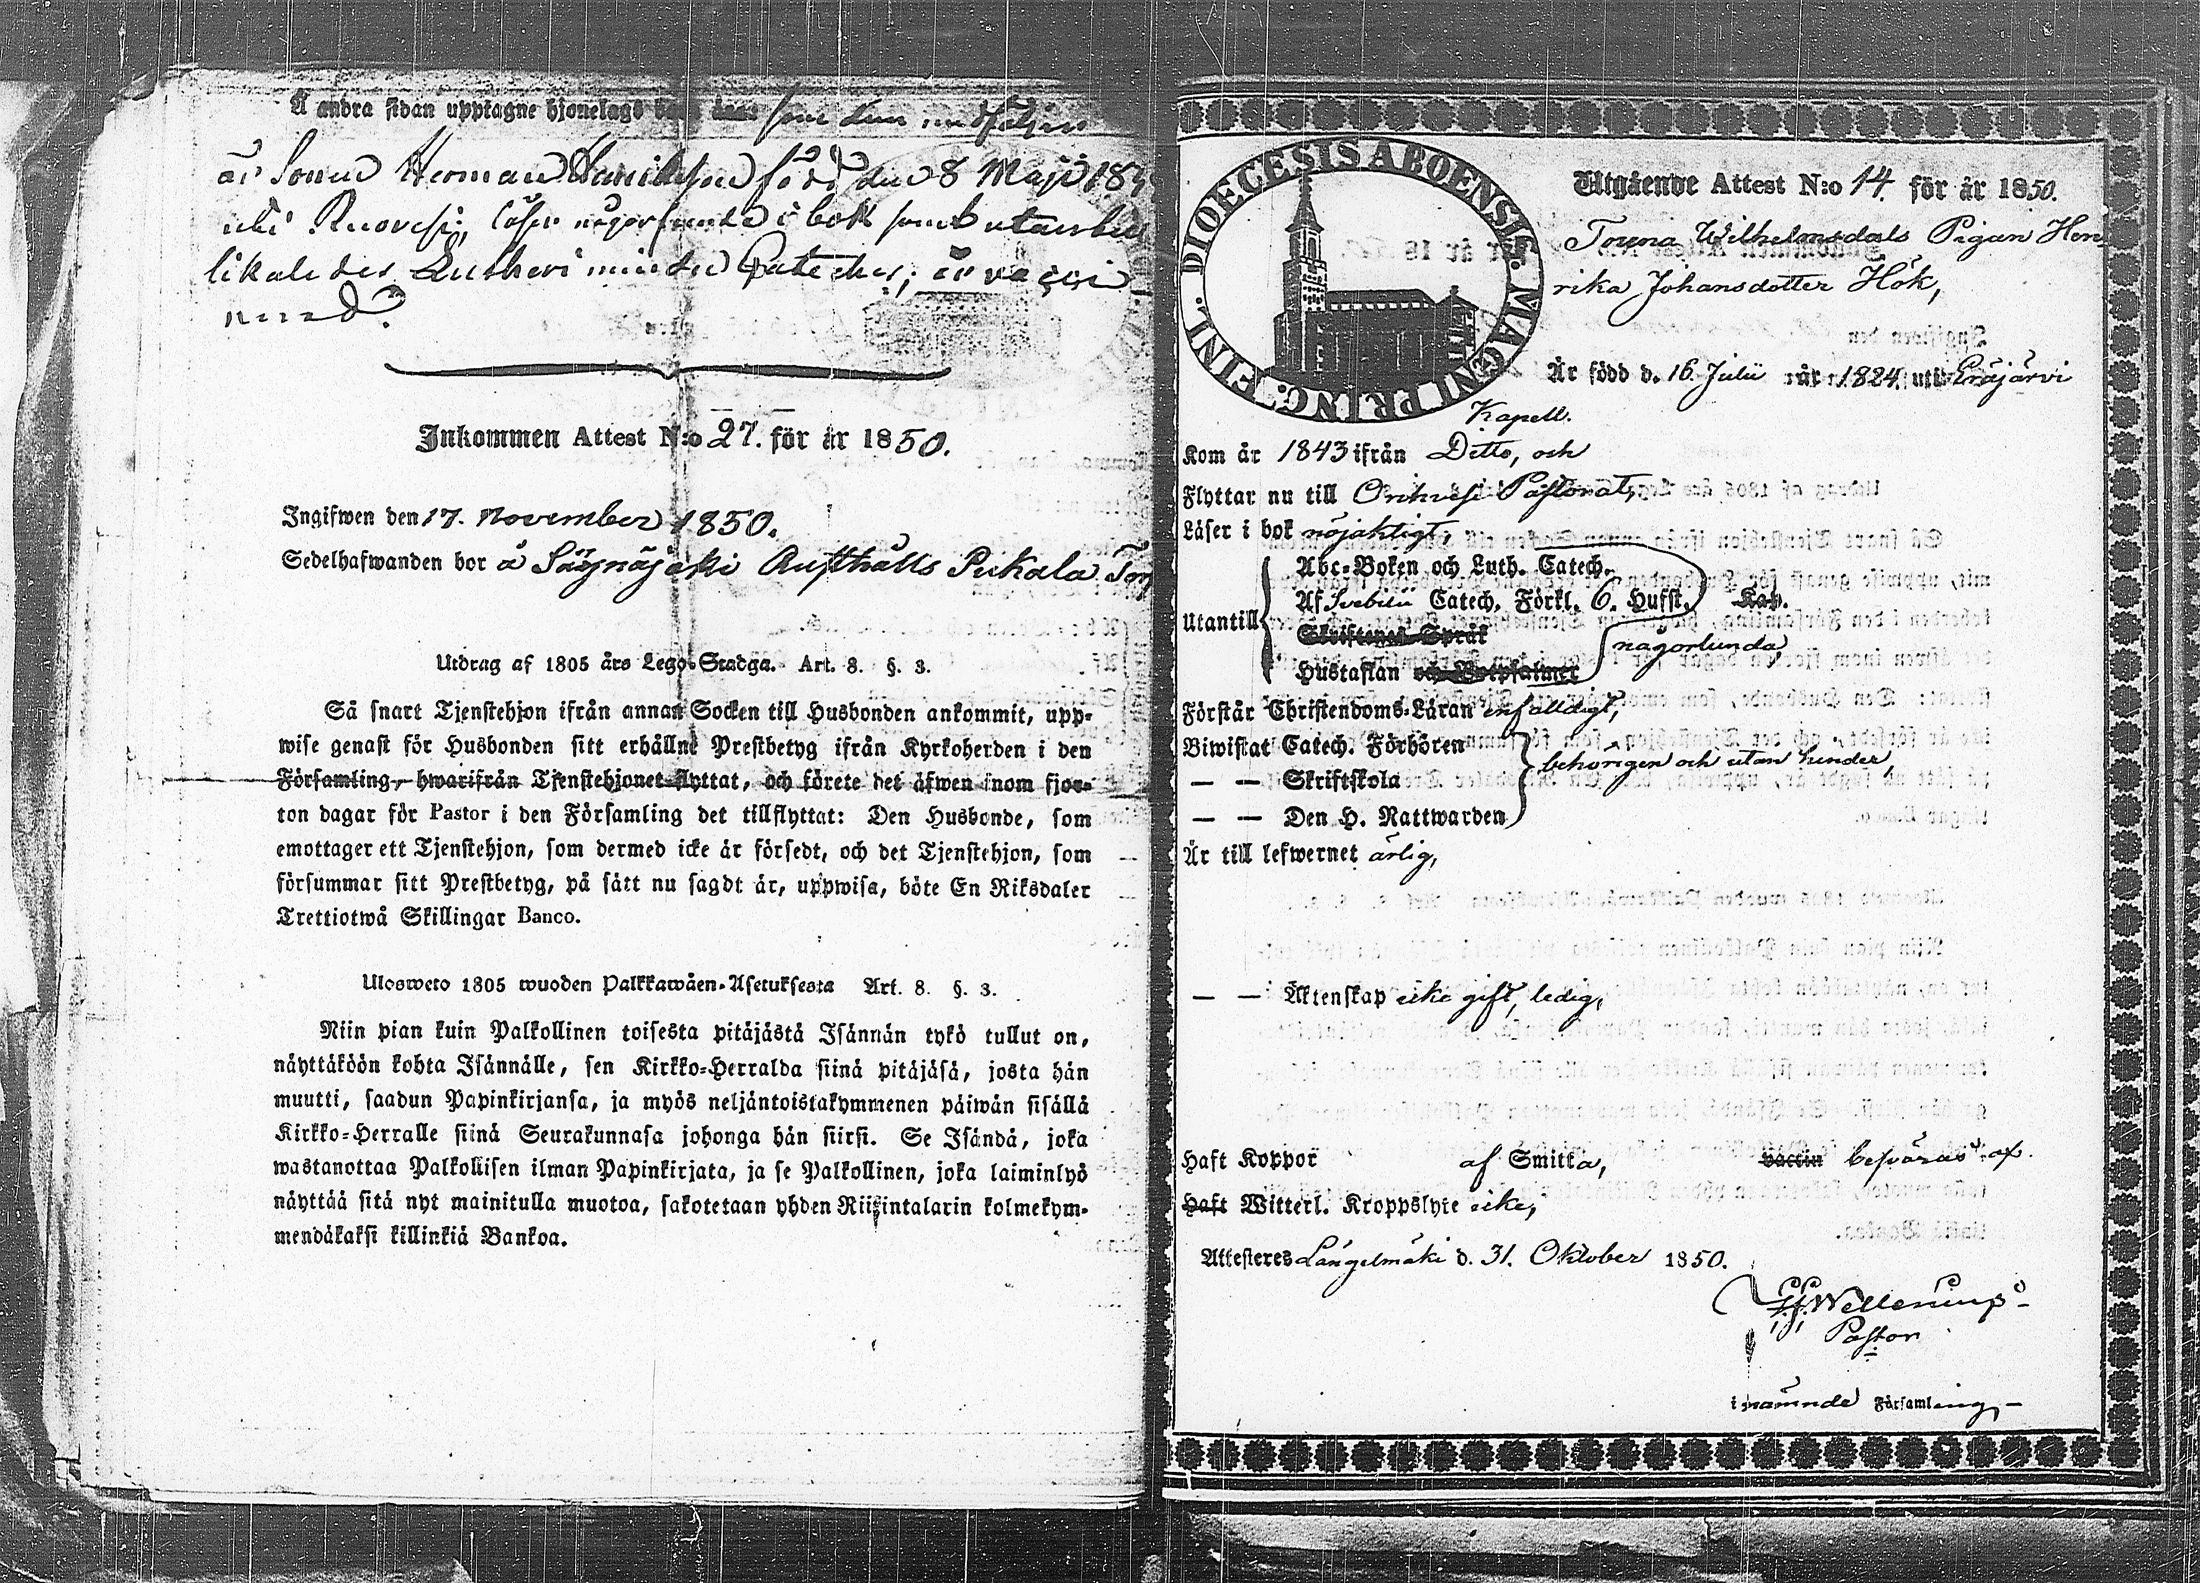 Å andra sidan upptagne hjonelags som den
är Sonen Herman född den 8 Maji 18
uti Ruovesi, läser någorlunda i bok samt utan
likaledes Lutheri mindre Cateches; är vacci
nerad.
Inkommen Attest N:o 27. för år 1850.
Ingifwen den 17. November 1850.
Sedelhafwanden bor å Säynäjoki Rusthålls Pukala Torp
Utdrag af 1805 års Lego-Stadga. Art. 8. §. 3.
Så snart Tjenstehjon ifrån annan Socken till Husbonden ankommit, upp-
wise genast för Husbonden sitt erhållne Prestbetyg ifrån Kyrkoherden i den
Församling, hwarifrån Tjenstehjonet flyttat, och förete det äfwen inom fjor-
ton dagar för Pastor i den Församling det tillflyttat: Den Husbonde, som
emottager ett Tjenstehjon, som dermed icke är försedt, och det Tjenstehjon, som
försummar sitt Prestbetyg, på sätt nu sagdt är, uppwisa, böte En Riksdaler
Trettiotwå Skillingar Banco.
Ulosweto 1805 wuoden Palkkawäen-Asetuksesta Art. 8. §. 3.
Niin pian kuin Palkollinen toisesta pitäjästä Isännän tykö tullut on,
näyttäköön kohta Isännälle, sen Kirkko-Herralda siinä pitäjäsä, josta hän
muutti, saadun Papinkirjansa, ja myös neljäntoistakymmenen päiwän sisällä
Kirkko-Herralle siinä Seurakunnasa johonga hän siirsi. Se Isändä, joka
wastanottaa Palkollisen ilman Papinkirjata, ja se Palkollinen, joka laiminlyö
näyttää sitä nyt mainitulla muotoa, sakotetaan yhden Riikintalarin kolmekym-
mendäkaksi killinkiä Bankoa.
DIOECESIS ABOENSIS. MAGNI PRINC. FINL.
Utgående Attest N:o 14. för år 1850.
Torna Wilhelmsdals Pigan Hen
rika Johansdotter Hök,
Är född d. 16. Julii år 1824 uti Eräjärvi
Kapell.
Kom år 1843 ifrån Ditto, och
Flyttar nu till Orihvesi Pastorat,
Läser i bok nöjaktigt,
Utantill
Abc-Boken och Luth. Catech.
Af Svebilii Catech. Förkl. 6. Hufst. Kap.
Skriftenes Språk
Hustaflan och Botpsalmer
någorlunda,
Förstår Christendoms-Läran enfalldigt,
Biwistat Catech. Förhören
— — Skriftskola
— — Den H. Nattwarden
behörigen och utan hinder,
Är till lefwernet ärlig,
— — Äktenskap icke gift, ledig,
Haft Koppor af Smitta, vaccin besväras af.
Haft Witterl. Kroppslyte icke,
Attesteres Längelmäki d. 31. Oktober 1850.
Pastor
i nämnde Församling,